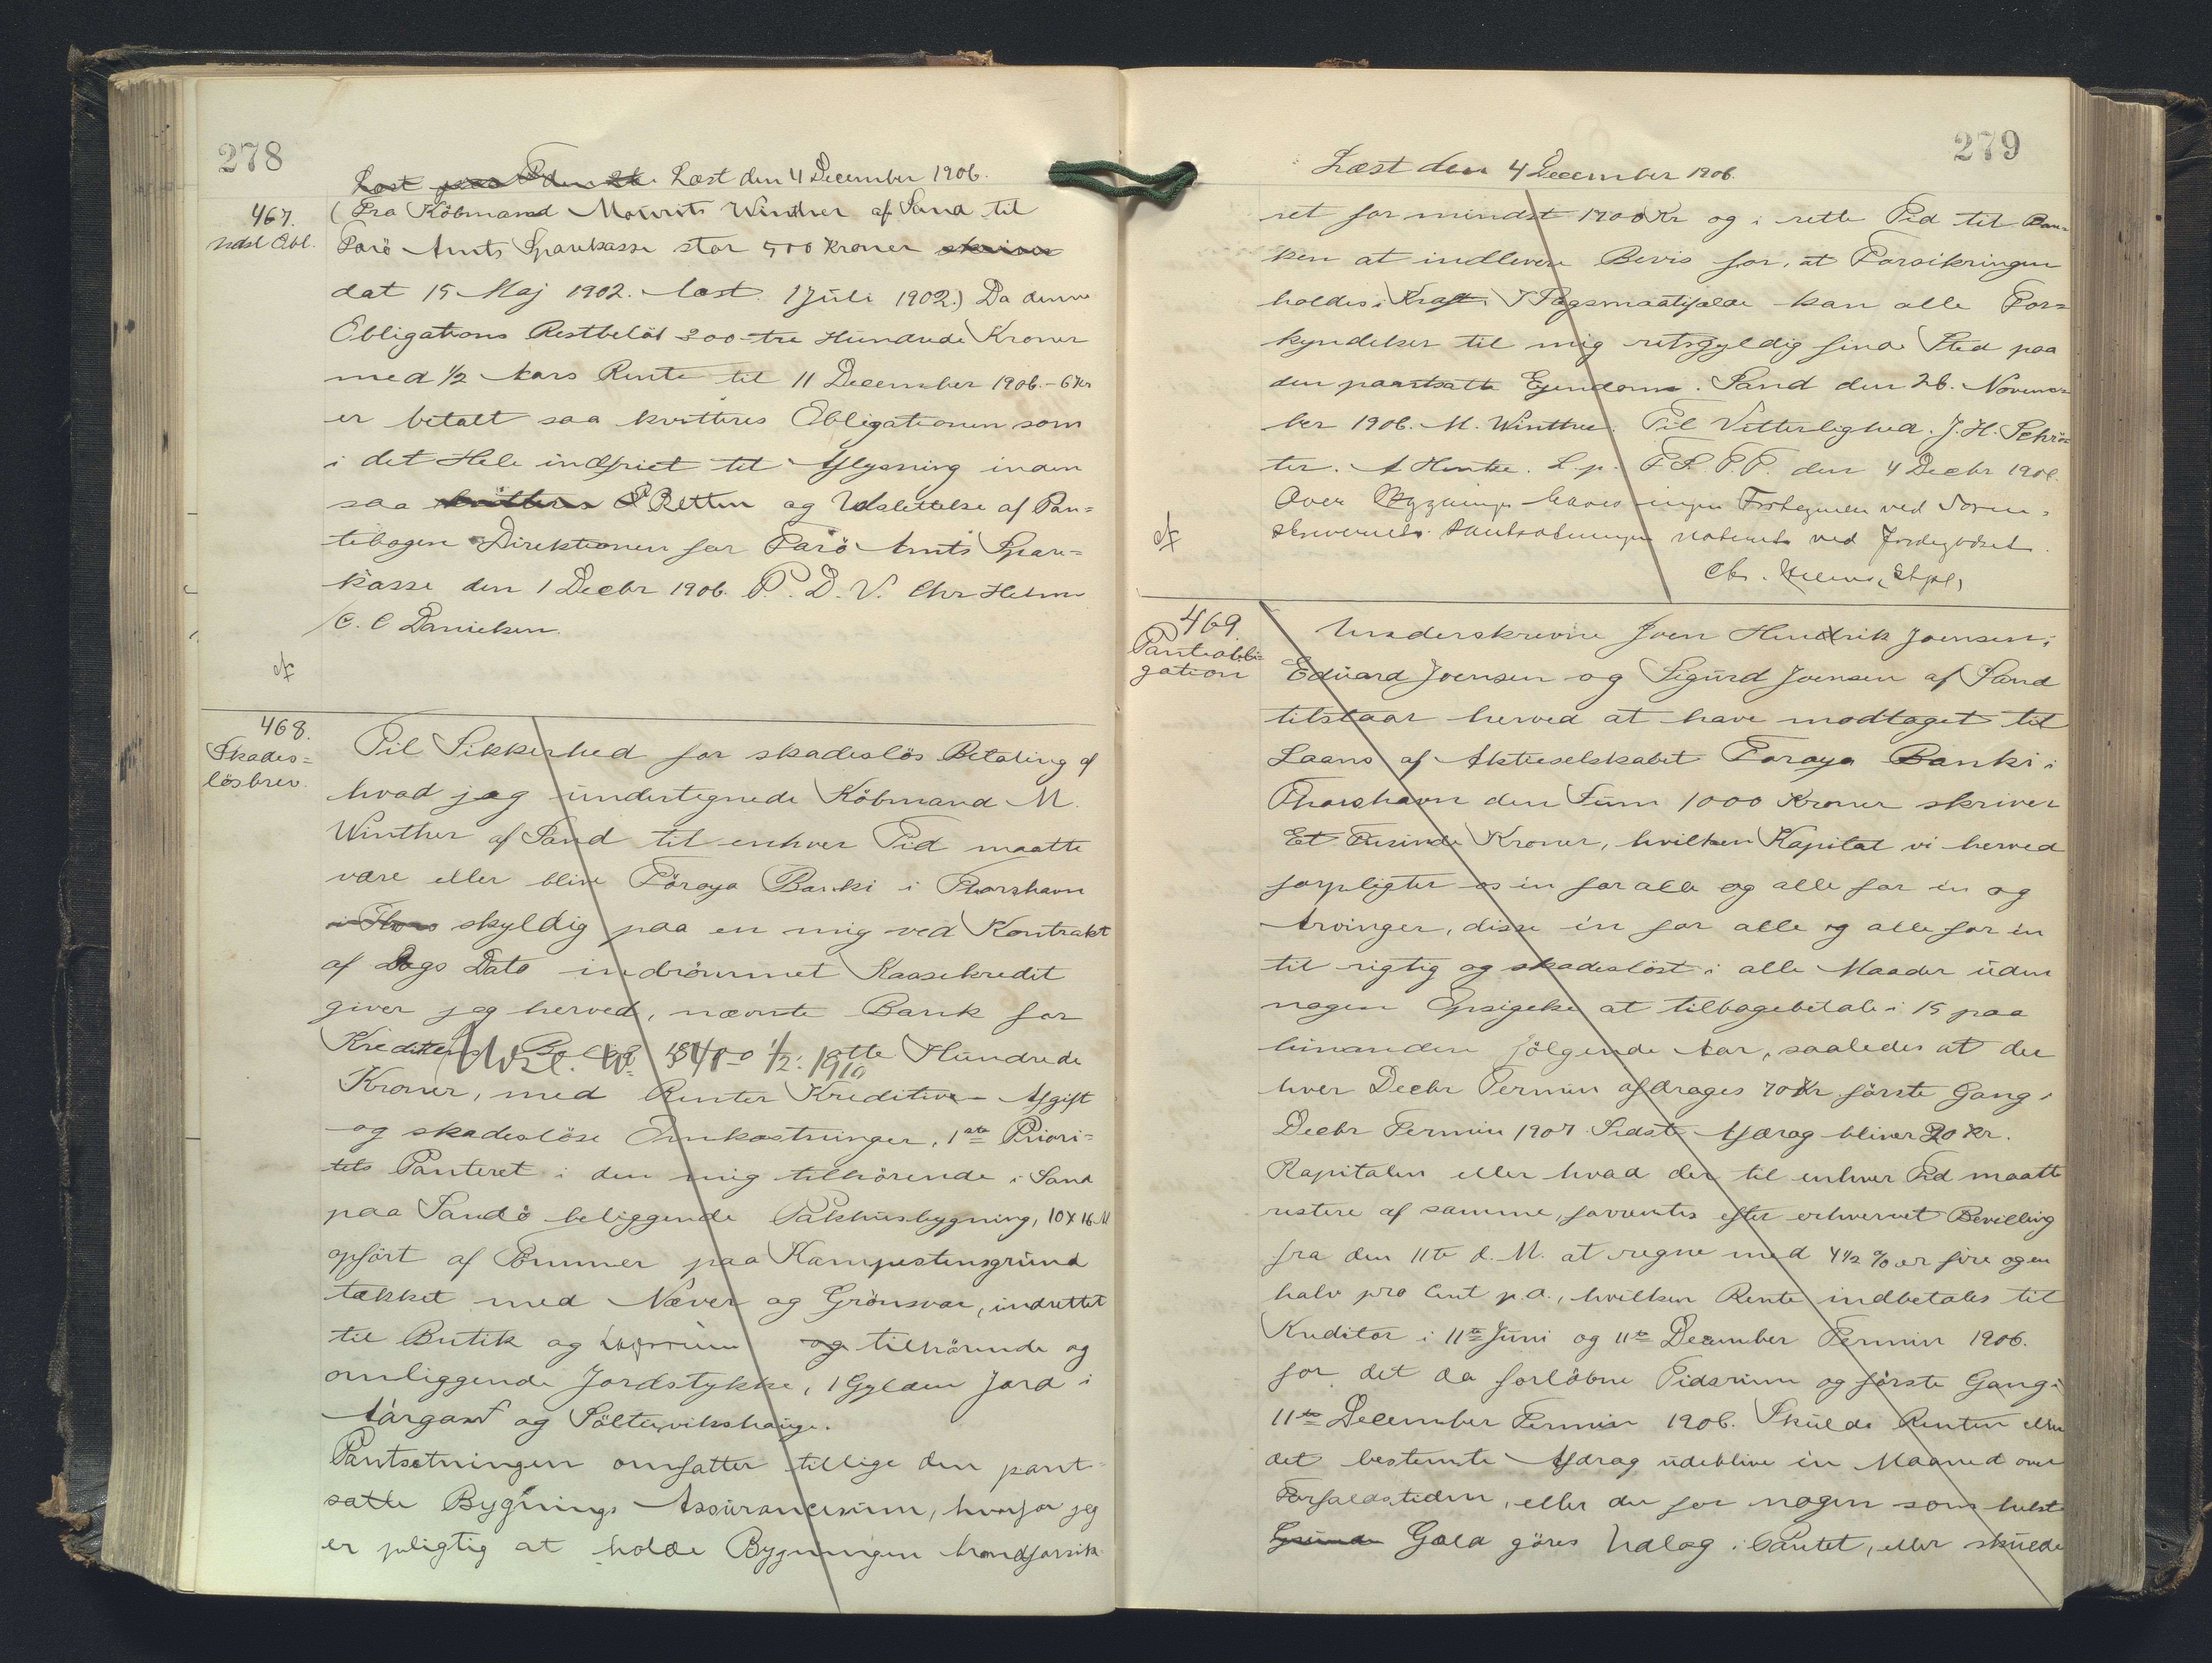 278
Læst den 4 December 1906.
467.
Udsl Obl.
(Fra Köbmand Mourits Winther af Sand til
Farö Amts Sparekasse stor 500 Kroner
dat 15 Maj 1902. læst. 1 Juli 1902.) Da denne
Obligations Restbelöb 300 - tre Hundrede Kroner
med 1/2 Aars Rente til 11 December 1906. - 6 Kr
er betalt saa kvitteres Obligationen som
i det Hele indfriet til Aflysning inden
saa Retten og Udslettelse af Pan=
tebogen Direktionen for Farö Amts Spare=
kasse den 1 Decbr 1906. P. D. V. Chr Helm
/C. C Danielsen.
cf
468.
Skades=
lösbrev.
Til Sikkerhed for skadeslös Betaling af
hvad jeg undertegnede Köbmand M.
Winther af Sand til enhver Tid maatte
være eller blive Föroya Banki i Thorshavn
skyldig paa en mig ved Kontrakt
af Dags Dato indrömmet Kassekredit
giver jeg herved, nævnte Bank for
Kreditens 1/2. 1910 otte Hundrede
Kroner, med Renter Kreditive - Afgift
og skadeslöse Omkostninger, 1ste Priori=
tets Panteret i den mig tilhörende i Sand
paa Sandö beliggende Pakhusbygning, 10 x 16 Al
opfört af Tömmer paa Kampestensgrund
tækket med Næver og Grönsvær, indrettet
til Butik og og tilhörende og
omliggende Jordstykke, 1 Gylden Jord i
Aargard og Söltuvikshauge.
Pantsætningen omfatter tillige den pant=
satte Bygnings Assurancesum, hvorfor jeg
er pligtig at holde Bygningen brandforsik=
279
Læst den 4 December 1906.
ret for mindst 1200 Kr og i rette Tid til Ban=
ken at indlevere Bevis for, at Forsikringen
holdes i Kraft. I Sögsmaalstilfælde kan alle For=
kyndelser til mig retsgyldig finde Sted paa
den pantsatte Ejendom. Sand den 26. Novem=
ber 1906. M. Winther. Til Vitterlighed. J. H. Schrö=
ter. A Hentze. L. p. F. S. T. P. den 4 Decbr 1906.
Over Bygninger haves ingen Fortegnelse ved Soren=
skriveriet. Pantsætningen noteret ved Jordegodset.
cf
469.
Panteobli=
gation
Underskrevne Joen Hendrik Joensen,
Eduard Joensen og Sigurd Joensen af Sand
tilstaar herved at have modtaget til
Laans af Aktieselskabet Föroya Banki i
Thorshavn den Sum 1000 Kroner skriver
Et Tusinde Kroner, hvilken Kapital vi herved
forpligter os en for alle og alle for en og
Arvinger, disse en for alle og alle for en
til rigtig og skadeslöst i alle Maader uden
nogen Opsigelse at tilbagebetale i 15 paa
hinanden fölgende Aar, saaledes at der
hver Decbr Termin afdrages 70 Kr förste Gang i
Decbr Termin 1907. Sidste Afdrag bliver 20 Kr.
Kapitalen eller hvad der til enhver Tid maatte
restere af samme, forrentes efter erhvervet Bevilling
fra den 11te d. M. at regne med 4 1/2 % er fire og en
halv pro Cent p.a., hvilken Rente indbetales til
Kreditor i 11te Juni og 11te December Termin 1906.
for det da forlöbne Tidsrum og förste Gang i
11te December Termin 1906. Skulde Renten eller
det bestemte Afdrag udeblive en Maaned over
Forfaldstiden, eller der for nogen som helst
Gæld göres Udlæg i Pantet, eller skulde